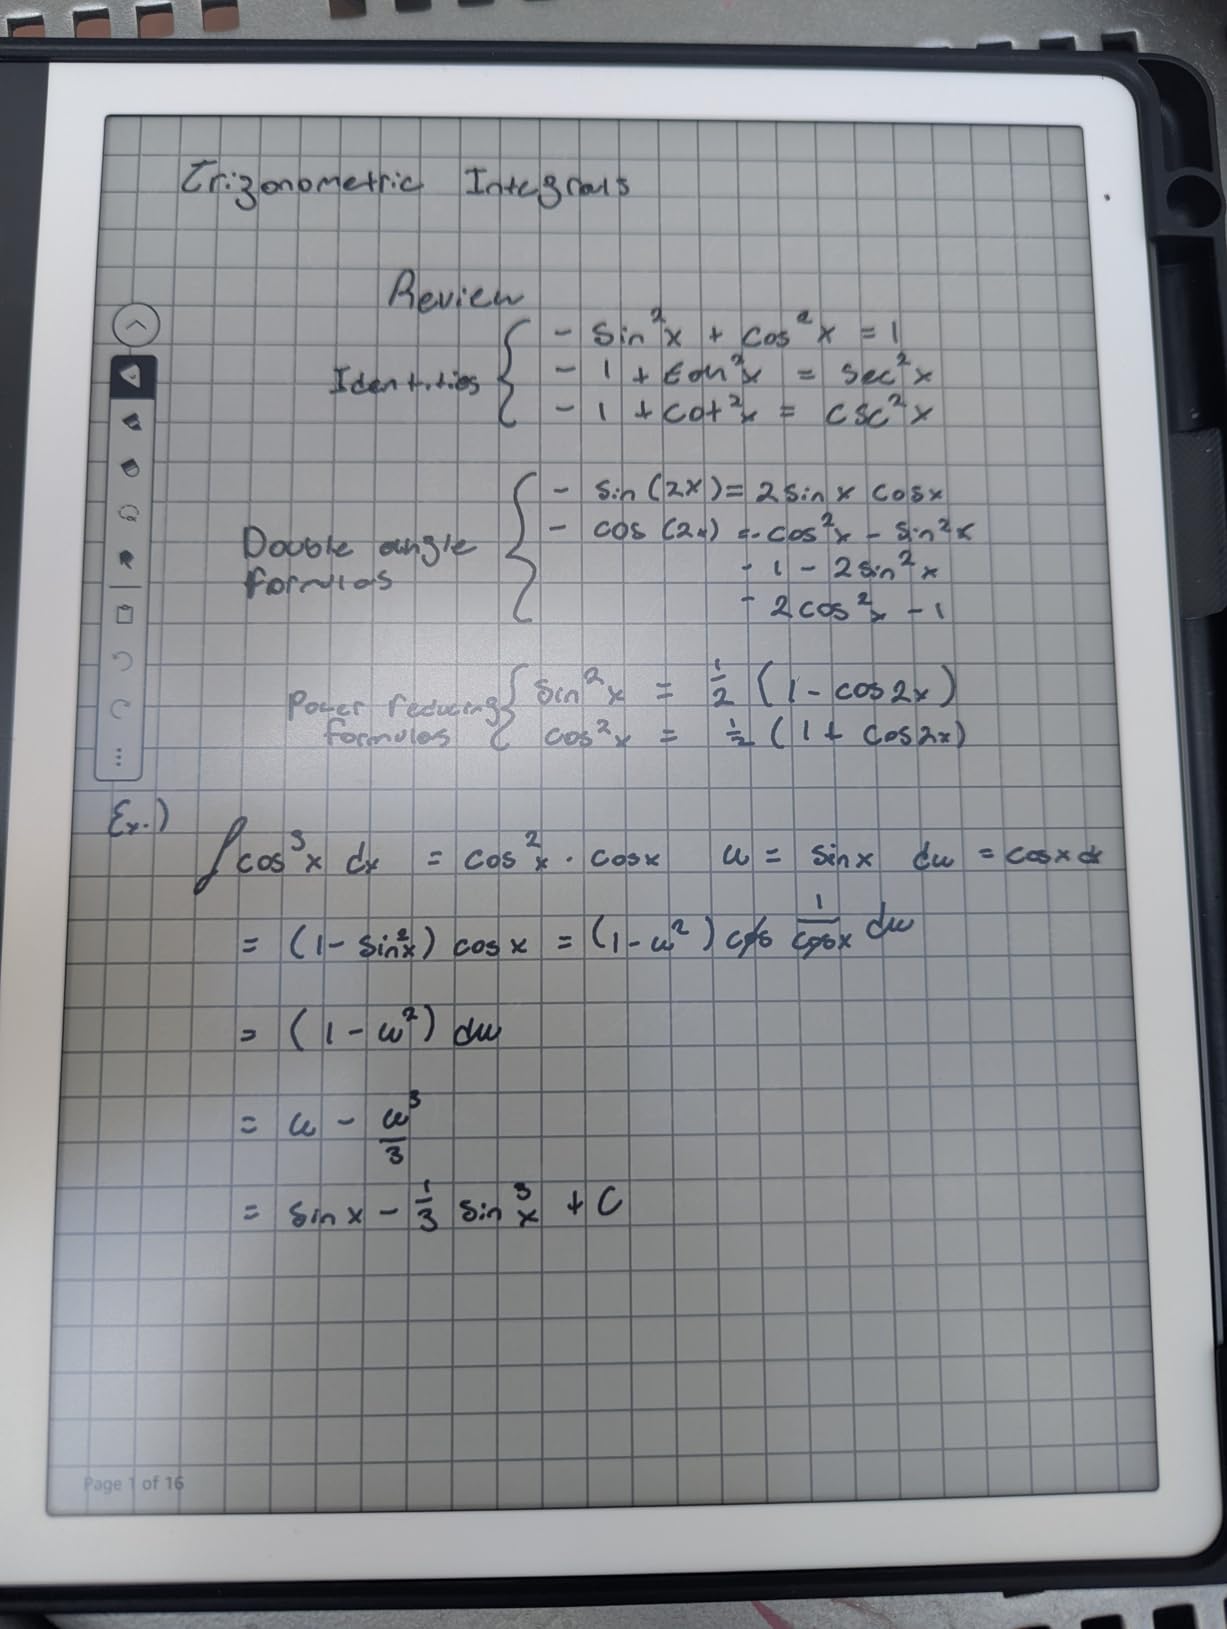 Trigonometric Integrals
Review
Identities
- sin²x + cos²x = 1
- 1 + tan²x = sec²x
- 1 + cot²x = csc²x
Double angle formulas
- sin(2x) = 2 sin x cosx
- cos(2x) = cos²x - sin²x
- 1 - 2sin²x
- 2cos²x - 1
Power reducing formulas
sin²x = 1/2 (1 - cos2x)
cos²x = 1/2 (1 + cos2x)
Ex.)
∫cos³x dx = cos²x · cosx u = sinx du = cosx dx
= (1 - sin²x) cosx = (1 - u²) cos 1/cosx du
= (1 - u²) du
= u - u³/3
= sin x - 1/3 sin³x + C
Page 1 of 16